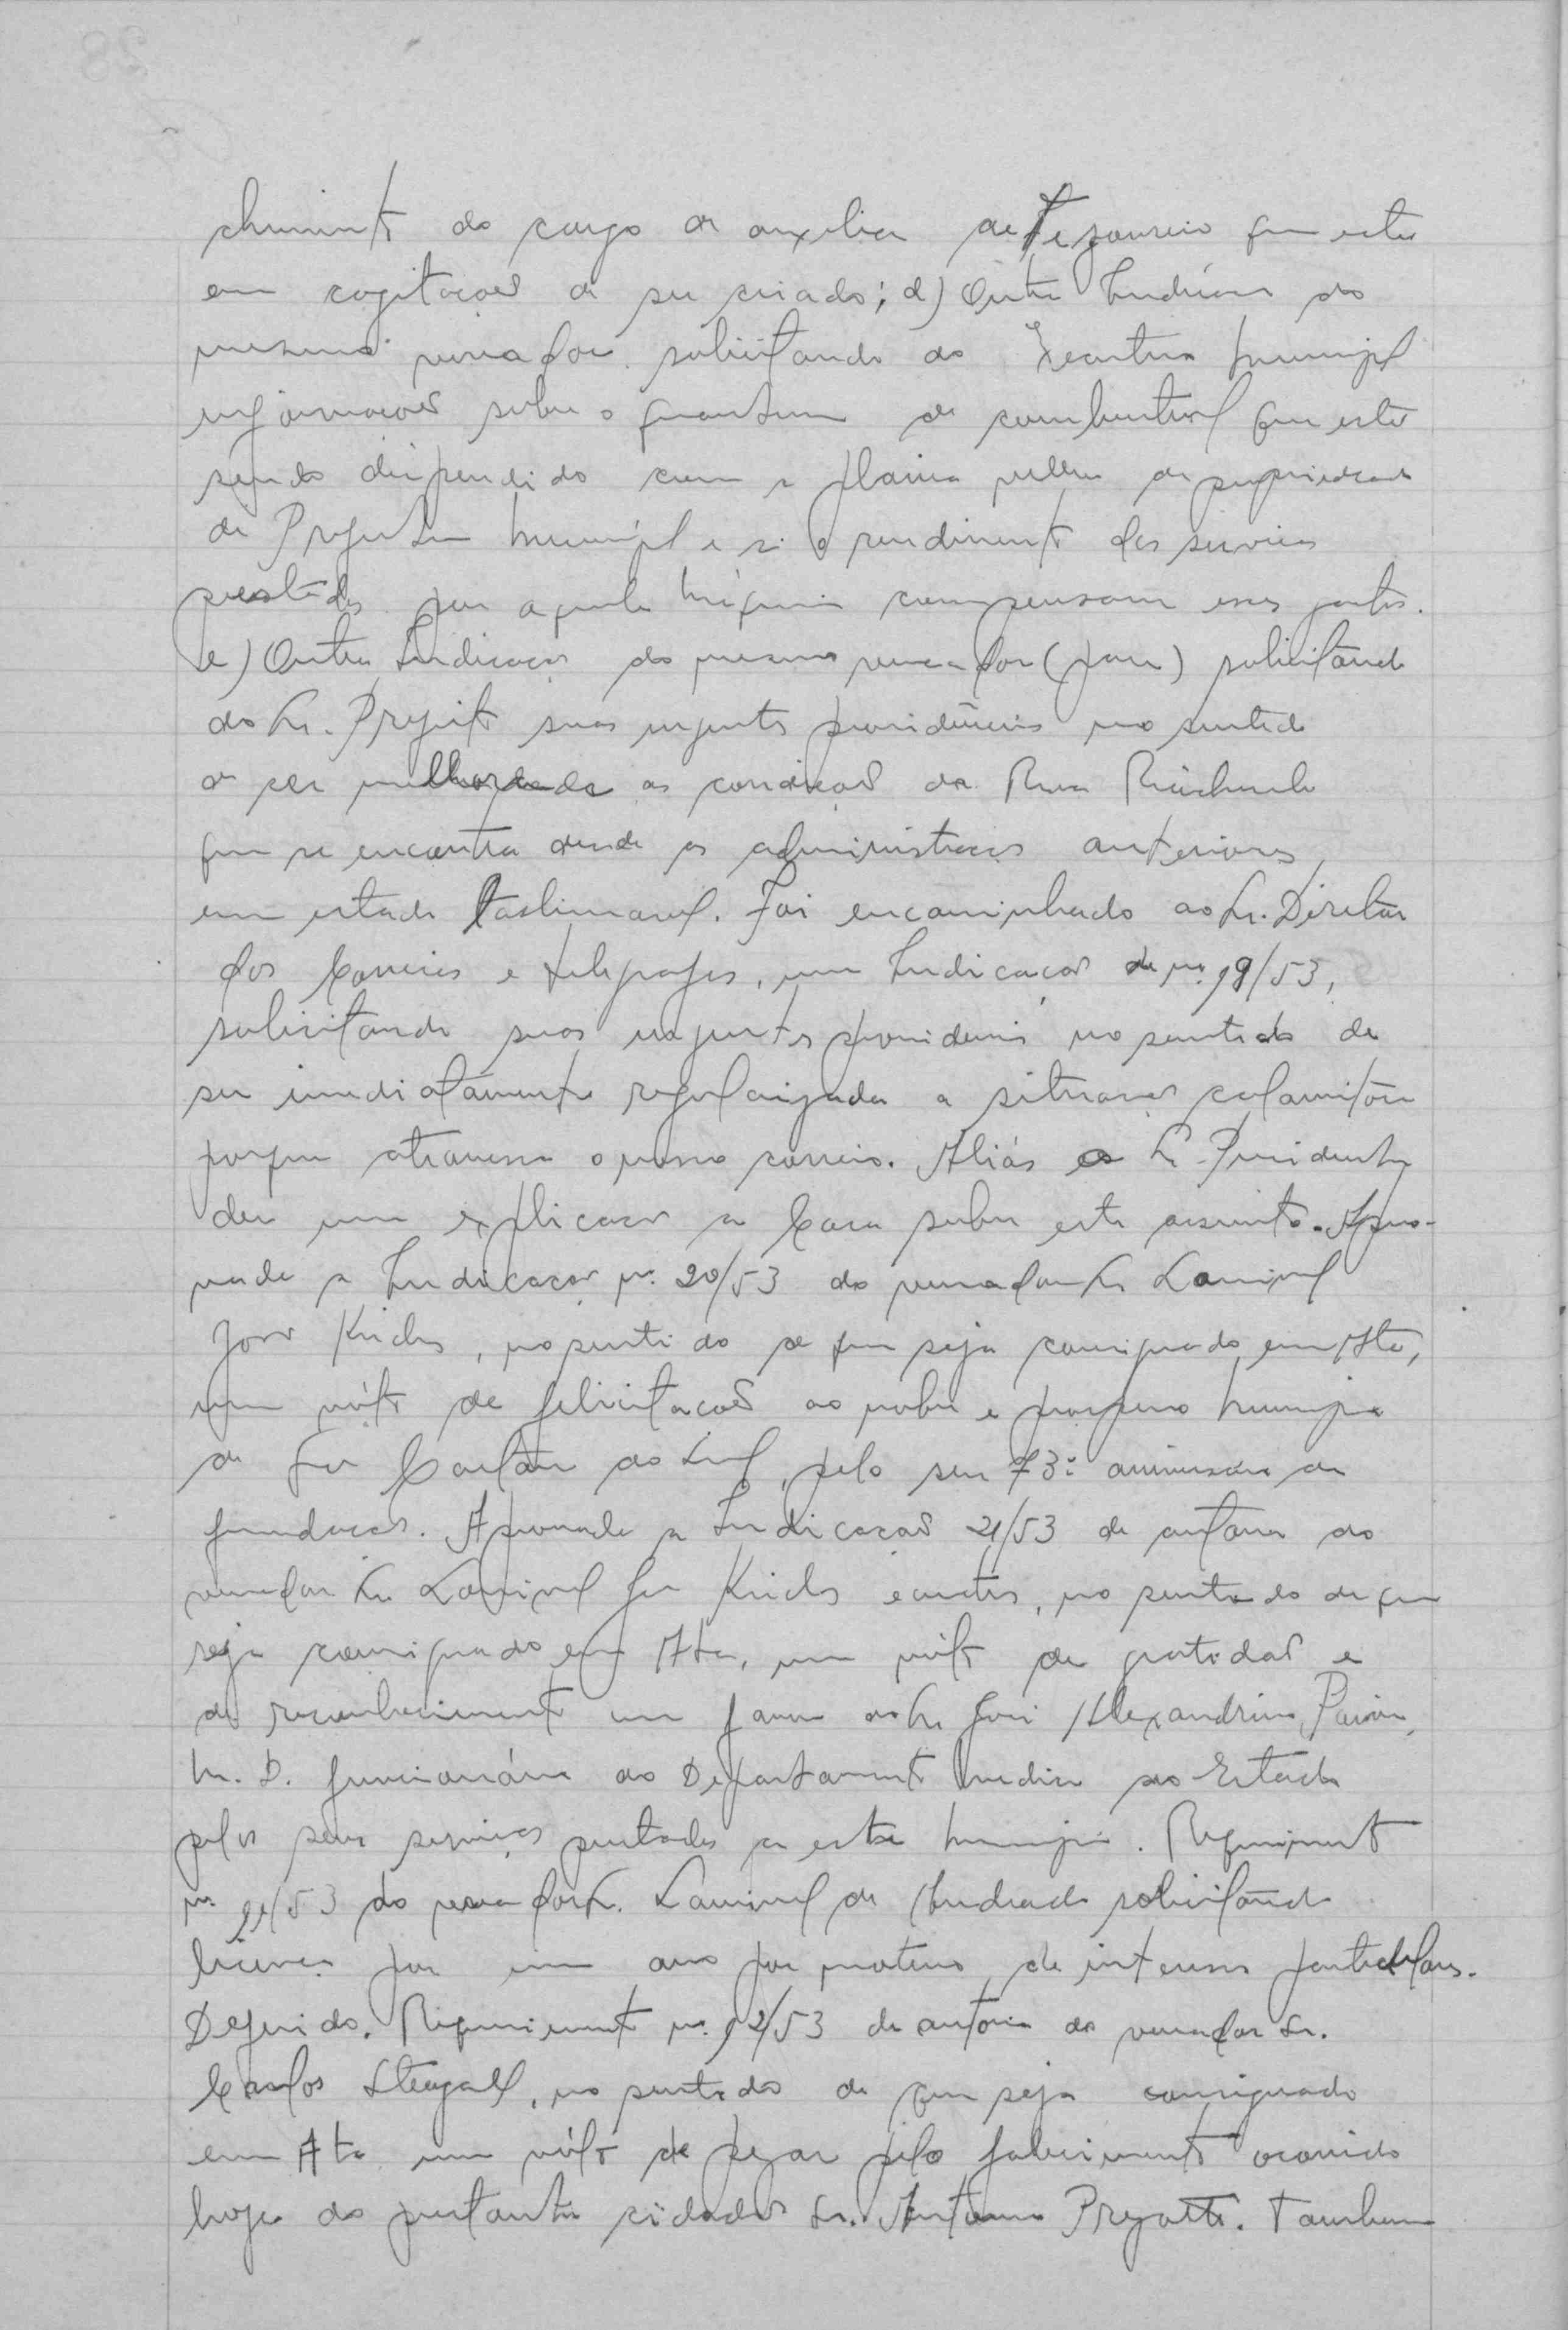 chimento do cargo de auxiliar de Tezoureiro que está
em cogitações de ser criado; d) Outra Indicação do
mesmo vereador solicitando do Executivo Municipal
informações sobre o quantum de combustivel que está
sendo dispendido com a plaina velha de propriedade
da Prefeitura Municipal e si o rendimento dos serviços
prestados por aquela máquina compensam esses gastos.
e) Outra Indicação do mesmo vereador () solicitando
do Sr. Prefeito suas urgentes providências no sentido
de ser melhorada as condições da Rua Riachuelo
que se encontra desde as administrações anteriores,
em estado lastimavel. Foi encaminhado ao Sr. Diretor
dos Correios e telegrafos, uma Indicação de nº. 19/53,
solicitando suas urgentes providencias no sentido de
ser imediatamente regularizada a situação calamitósa
porque atravessa o nosso correio. Aliás o Sr. Presidente
deu uma explicação a Casa sobre este assunto. Apro-
vada a Indicação nº. 20/53 do vereador Sr. Lourival
José Kricks, no sentido de que seja consignado em Ata,
um vóto de felicitações ao nobre e prospero Municipio
de São Caetano do Sul, pelo seu 73º aniversário de
fundação. Aprovada a Indicação 21/53 de autoria do
vereador Sr. Lourival José Kricks e outros, no sentido de que
seja consignado em Ata, um vóto de gratidão e
de reconhecimento em favor do Sr. José Alexandrino Paiva,
M. D. funcionário do Departamento Medico do Estado
pelos seus serviços prestados a este Municipio. Requerimento
nº 11/53 do vereador Sr. Lourival de Andrade solicitando
licença por um ano por motivos de interesses particulares.
Deferido. Requerimento nº. 12/53 de autoria do vereador Sr.
Carlos Stengall, no sentido de que seja consignado
em Ata um vóto de pezar pelo falecimento ocorrido
hoje do prestante cidadão Sr. Antonio Pregatto. Tambem